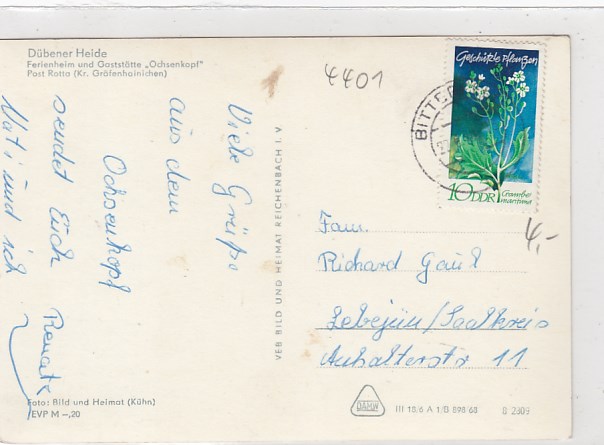 Dübener Heide
Ferienheim und Gaststätte „Ochsenkopf"
Post Rotta (Kr. Gräfenhainichen)
4401
Geschützte Pflanzen
BITTE
10 DDR
Crambe
maritima
4,-
Viele Grüße
aus dem
Ochsenkopf
sendet Euch
und ich
Renate
VEB BILD UND HEIMAT REICHENBACH I. V.
Fam.
Richard Gaul
Lebejün/Saalkreis
Anhalterstr 11
Foto: Bild und Heimat (Kühn)
EVP M –,20
DAMW
III 18/6 A 1/B 898/68